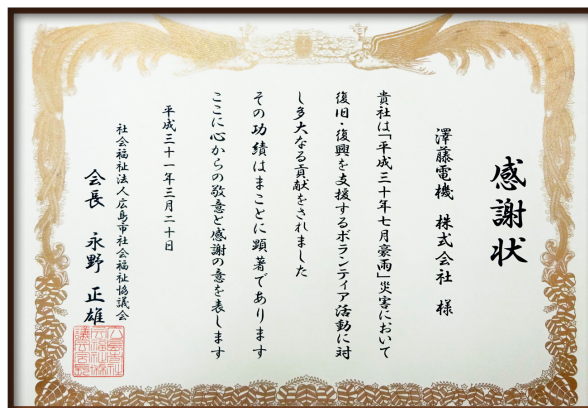 感謝状
澤藤電機 株式会社 様
貴社は「平成三十年七月豪雨」災害において
復旧・復興を支援するボランティア活動に対
し多大なる貢献をされました
その功績はまことに顕著であります
ここに心からの敬意と感謝の意を表します
平成三十一年三月二十日
社会福祉法人広島市社会福祉協議会
会長 永野 正雄